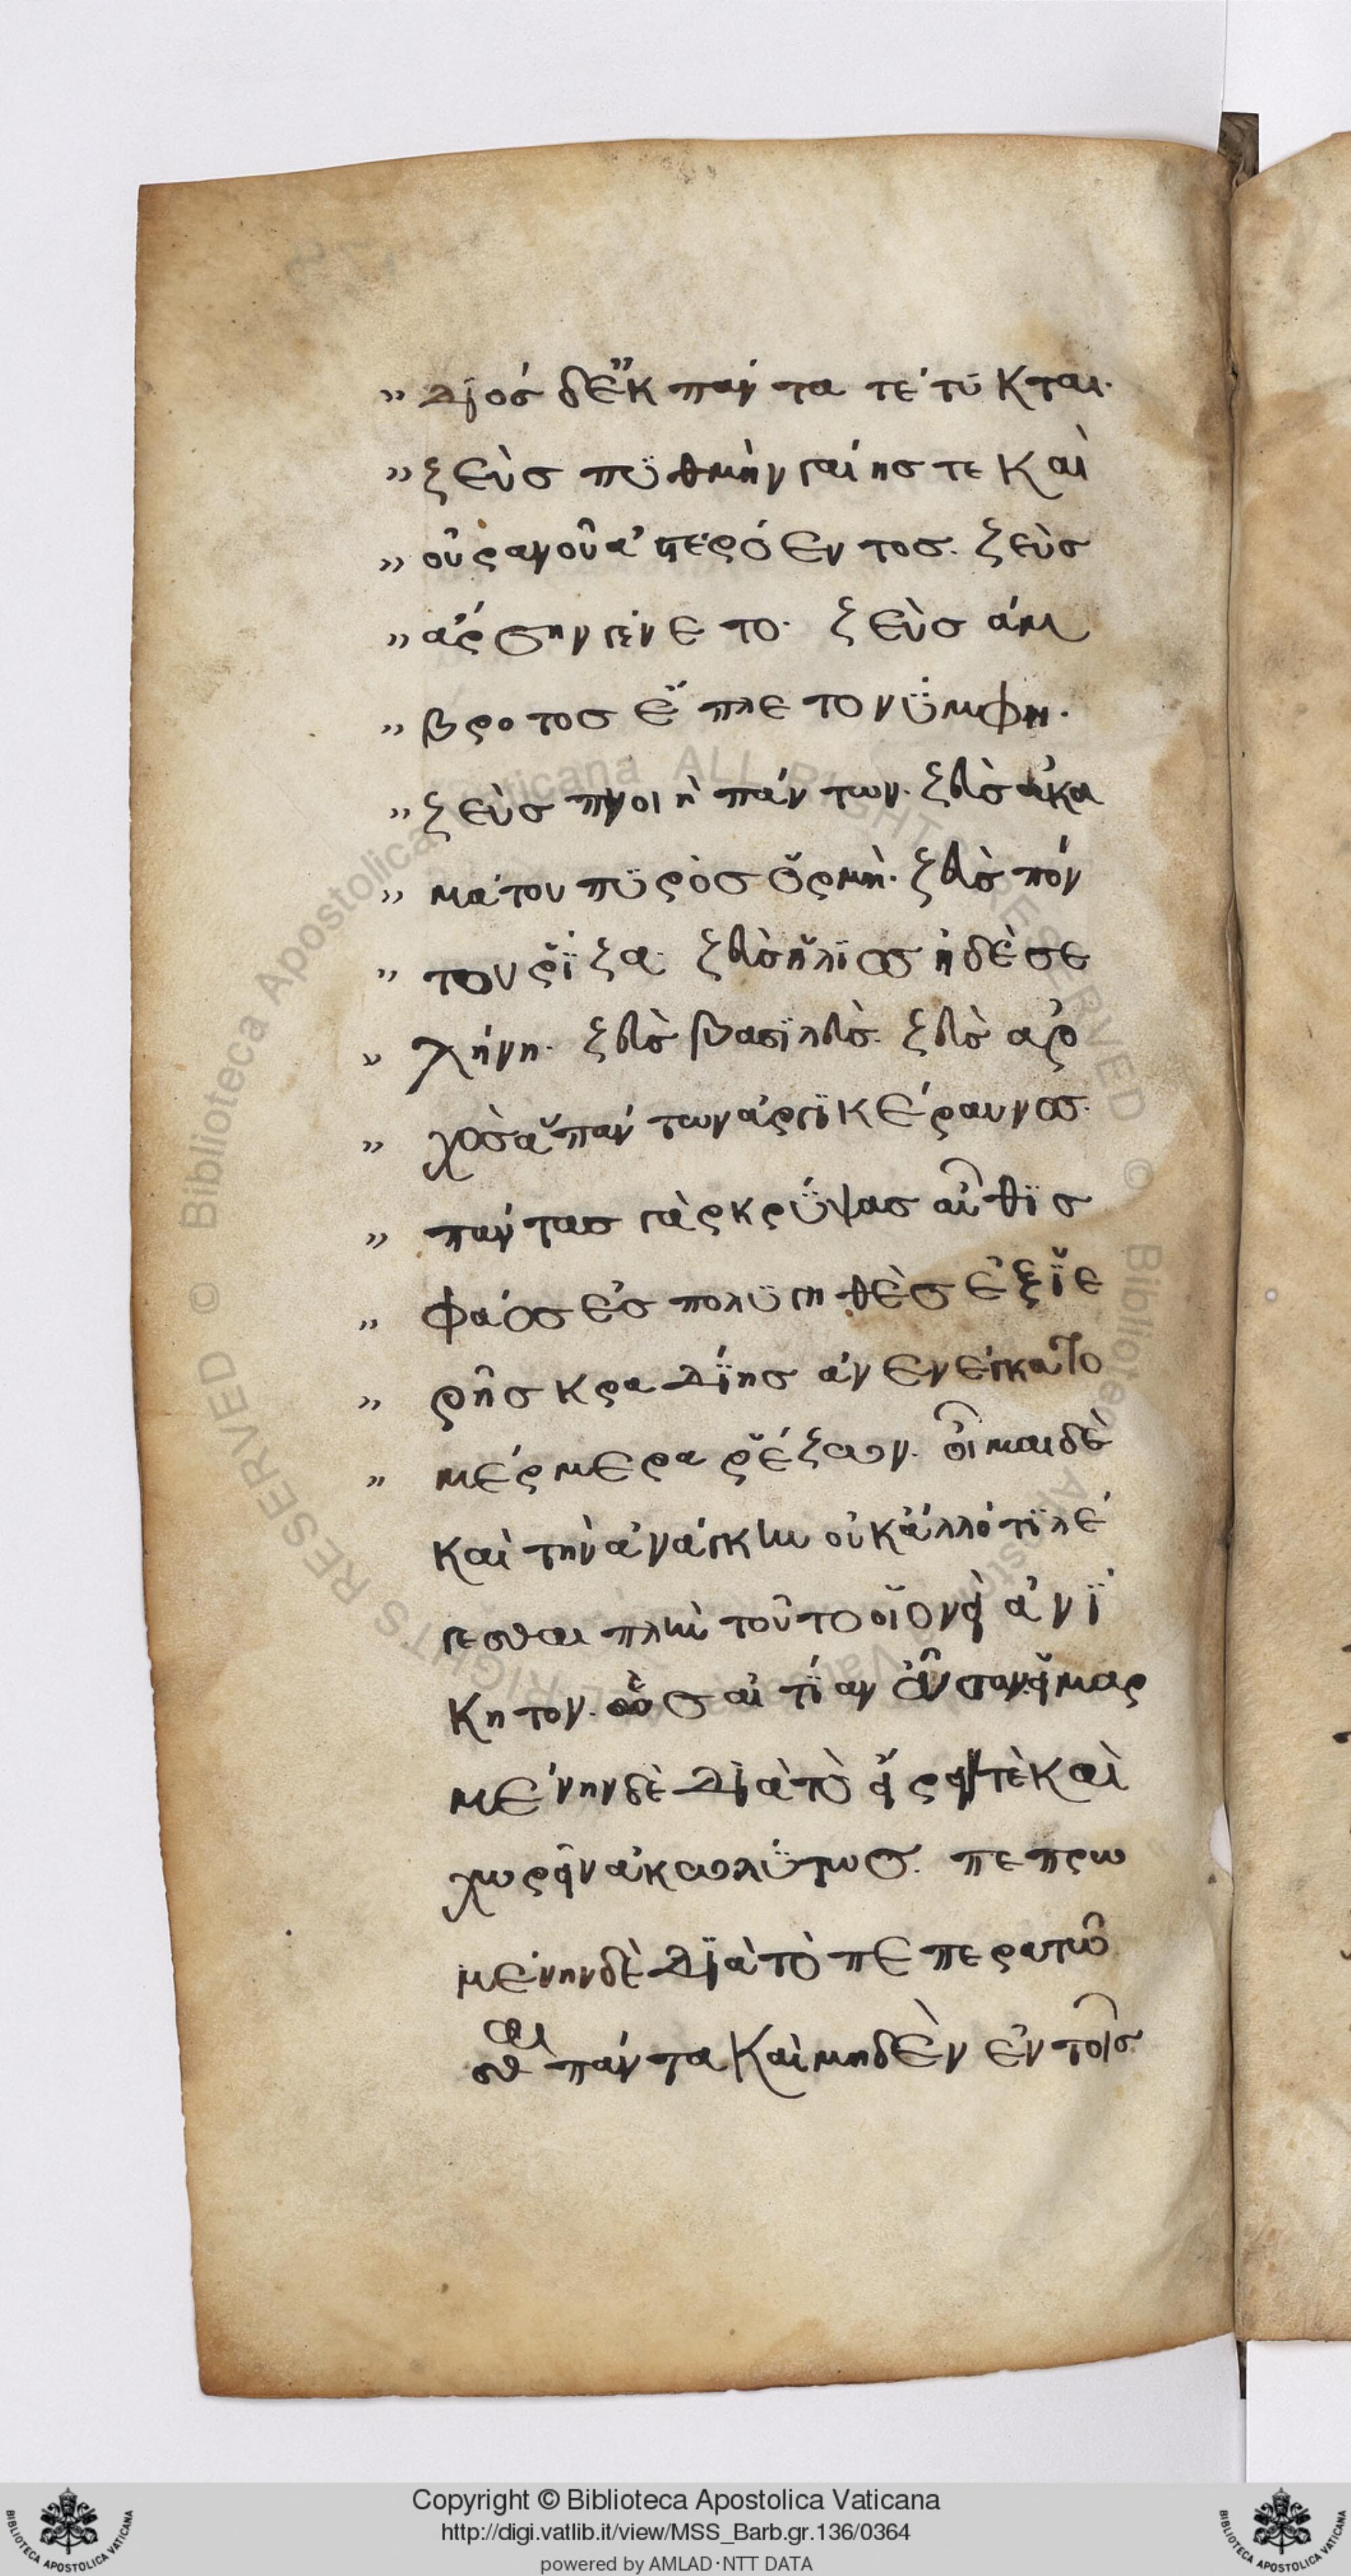 " Διός δ' ἐκ πάντα τέτυκται·
" ζεὺς πυθμὴν γαίης τε καὶ
" οὐρανοῦ ἀστερόεντος. ζεὺς
" ἄρσην γένετο· ζεὺς ἄμ
" βροτος ἔπλετο νύμφη·
" ζεὺς πνοιὴ πάντων· ζεὺς ἀκα
" μάτου πυρὸς ὁρμὴ· ζεὺς πόν
" του ῥίζα· ζεὺς ἥλιος ἠδὲ σε
" λήνη· ζεὺς βασιλεὺς· ζεὺς ἀρ
" χὸς ἁπάντων ἀργικέραυνος·
" πάντας γὰρ κρύψας αὖθις
" φάος ἐς πολυγηθὲς ἐξ ἱε
" ρῆς κραδίης ἀνενείκατο
" μέρμερα ῥέζων. οἶμαι δὲ
καὶ τὴν ἀνάγκην οὐκ ἄλλό τι λέ
γεσθαι πλὴν τοῦτο οἱονεὶ ἀνί
κητον. αἰτίαν ὄντα· εἱμαρ
μένην δὲ διὰ τὸ εἴρειν τὲ καὶ
χωρεῖν ἀκωλύτως. πεπρω
μένην δὲ διὰ τὸ πεπερατῶ
σθαι πάντα καὶ μηδὲν ἐν τοῖς
Copyright © Biblioteca Apostolica Vaticana
http://digi.vatlib.it/view/MSS_Barb.gr.136/0364
powered by AMLAD·NTT DATA